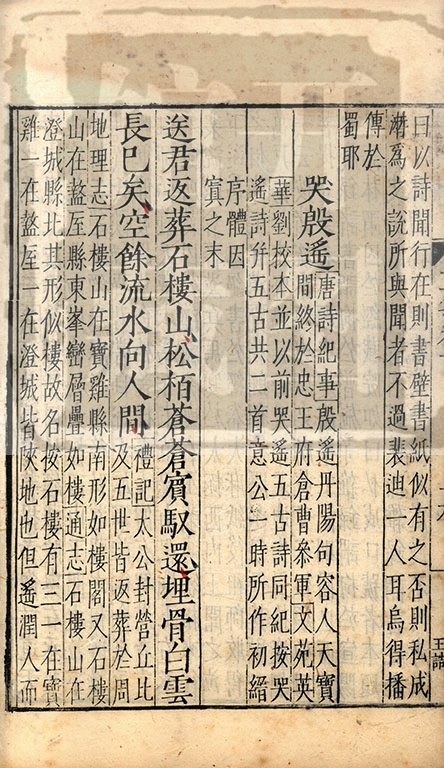 曰以詩聞行在則書壁書紙似有之否則私成
潛爲之說所與聞者不過裴迪一人耳烏得播
傳於
蜀耶
哭殷遙
唐詩紀事殷遙丹陽句容人天寶
間終於忠王府倉曹叅軍文苑英
華劉校本並以前哭遙五古詩同紀按哭
遙詩幷五古共二首意公一時所作初緇
序體因
寘之末
送君返葬石樓山松栢蒼蒼賓馭還埋骨白雲
長巳矣空餘流水向人間
禮記太公封營丘比
及五世皆返葬於周
地理志石樓山在寶雞縣南形如樓閣又石樓
山在盩厔縣東峯巒層疊如樓通志石樓山在
澄城縣北其形似樓故名按石樓有三一在寶
雞一在盩厔一在澄城皆陝地也但遙潤人而